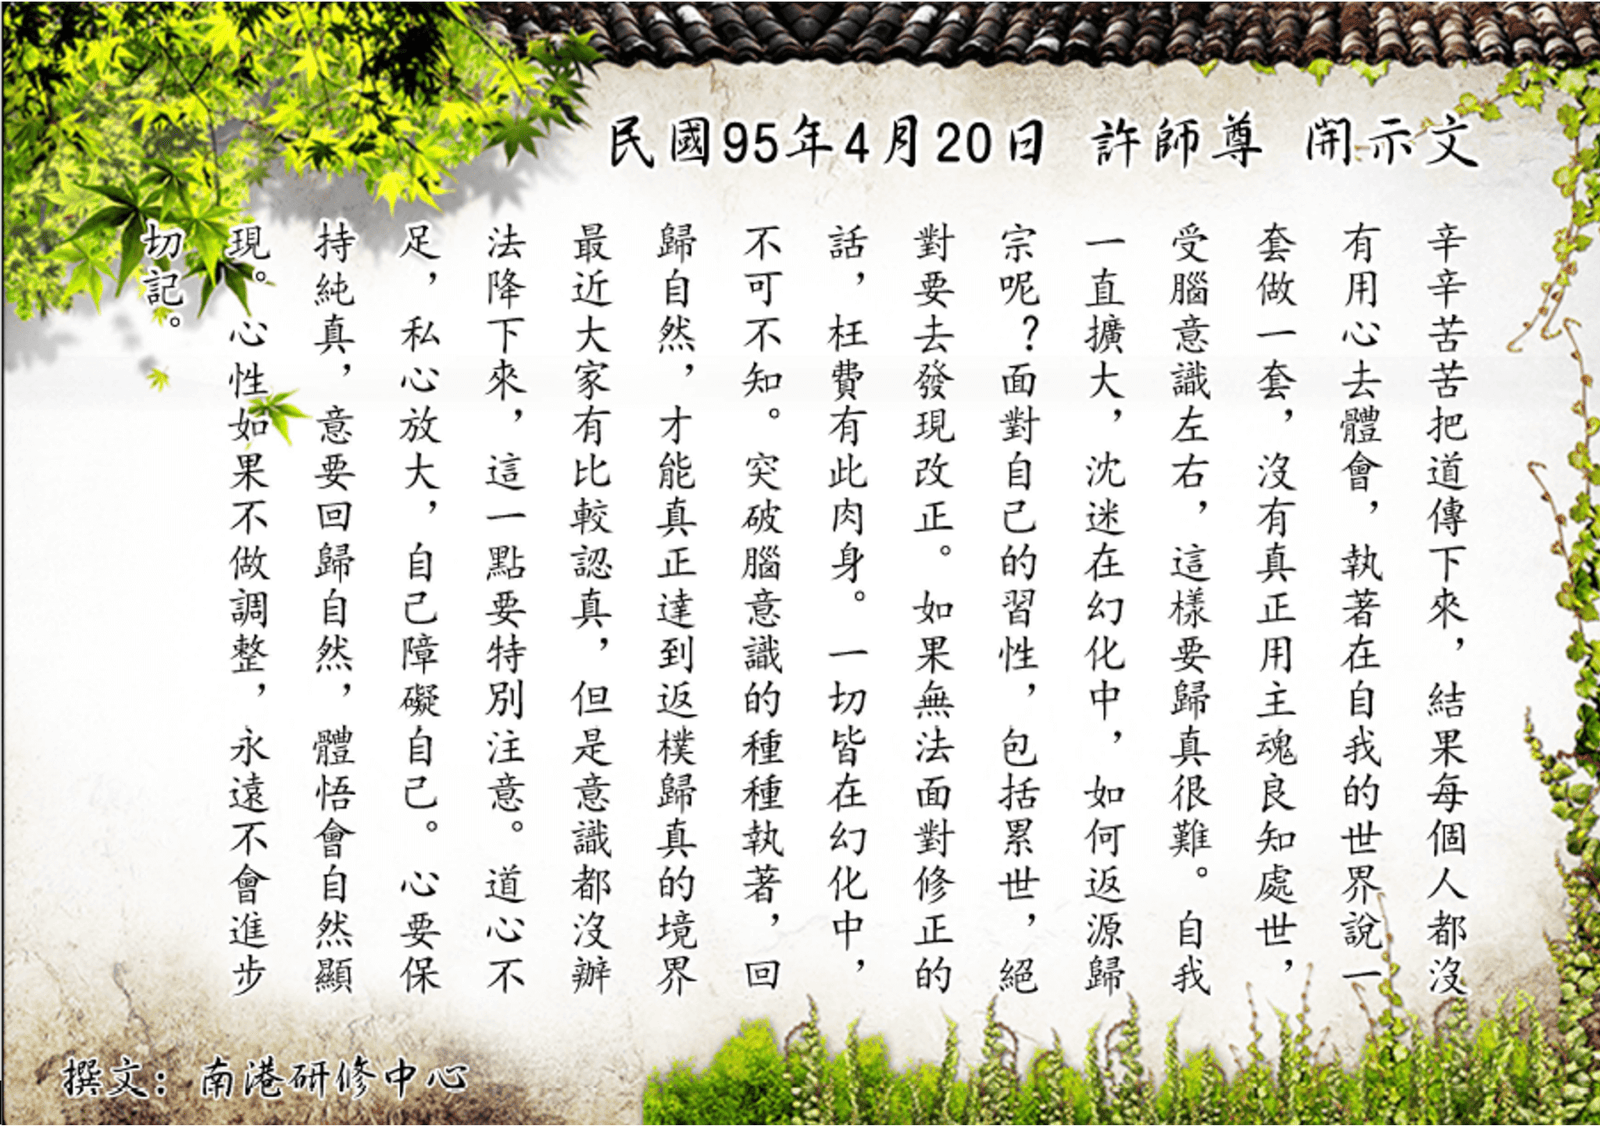 民國95年4月20日 許師尊 開示文
辛辛苦苦把道傳下來，結果每個人都沒
有用心去體會，執著在自我的世界說一
套做一套，沒有真正用主魂良知處世，
受腦意識左右，這樣要歸真很難。自我
一直擴大，沈迷在幻化中，如何返源歸
宗呢？面對自己的習性，包括累世，絕
對要去發現改正。如果無法面對修正的
話，枉費有此肉身。一切皆在幻化中，
不可不知。突破腦意識的種種執著，回
歸自然，才能真正達到返樸歸真的境界
最近大家有比較認真，但是意識都沒辦
法降下來，這一點要特別注意。道心不
足，私心放大，自己障礙自己。心要保
持純真，意要回歸自然，體悟會自然顯
現。心性如果不做調整，永遠不會進步
切記。
撰文：南港研修中心